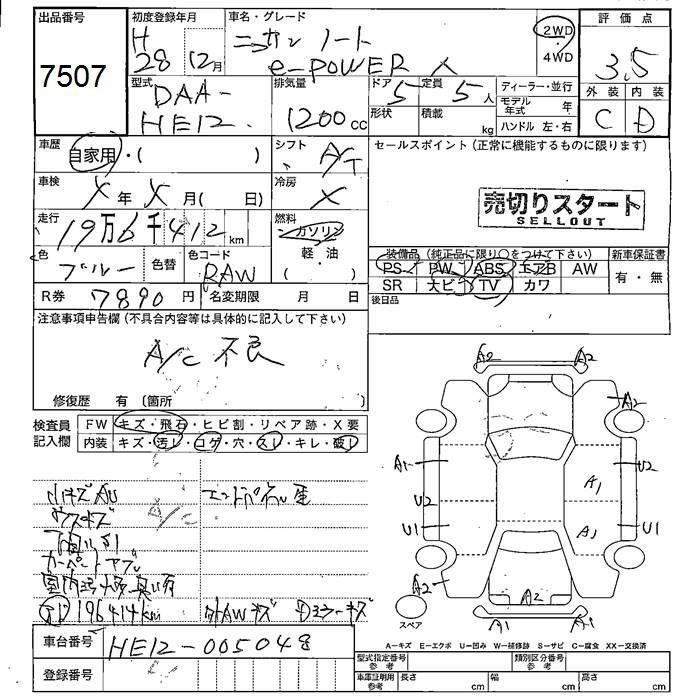 出品番号
7507
初度登録年月
H
28 12月
車名・グレード
ニッサン ノート
e-POWER
2WD
・
4WD
評価点
3.5
外装 内装
C D
型式
DAA-
HE12
排気量
1200cc
ドア 5 定員 5人
形状 積載 kg
ディーラー・並行
モデル年式 年
ハンドル 左・右
車歴
自家用・( )
シフト
A/T
セールスポイント (正常に機能するものに限ります)
売切りスタート
SELLOUT
車検
X年 X月( 日)
冷房
X
走行
19万6千412km
燃料
ガソリン
軽・油
( )
色
ブルー
色替
色コード
RAW
装備品 (純正品に限り○をつけて下さい)
PS PW ABS エアB AW
SR ナビ TV カワ
新車保証書
有・無
後日品
R券 7890円
名変期限 月 日
注意事項申告欄 (不具合内容等は具体的に記入して下さい)
A/C 不良
修復歴 有 〔箇所 〕
検査員
記入欄
FW キズ・飛石・ヒビ割・リペア跡・X要
内装 キズ・汚レ・コゲ・穴・スレ・キレ・破レ
小キズAU
A/C
196414km
外AWキズ Dミラーキズ
A2 A2
A2
A1 U2
A1
U2
U1 A1 U1
A2
A2
A1 A1
スペア
A−キズ E−エクボ U−凹み W−補修跡 S−サビ C−腐食 XX−交換済
車台番号
HE12-005048
登録番号
型式指定番号
参考
類別区分番号
参考
車庫証明用
参考
長さ cm 幅 cm 高さ cm